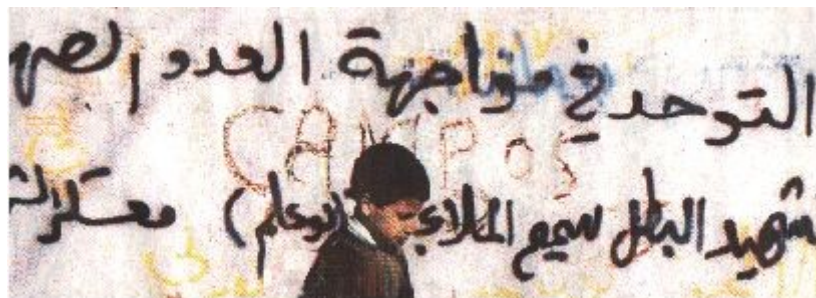 التوحد في مواجهة العدو الصه
CAMPOS
شهيد البطل سميح الملاعبي (ابو علم)